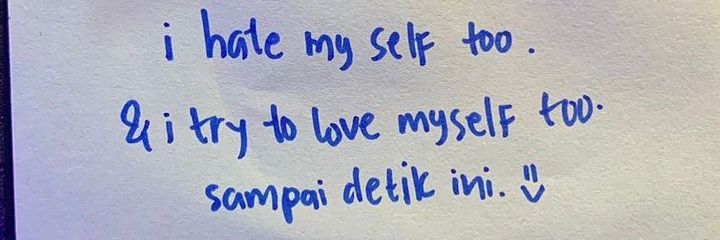 i hate my self too.
& i try to love myself too.
sampai detik ini. :)